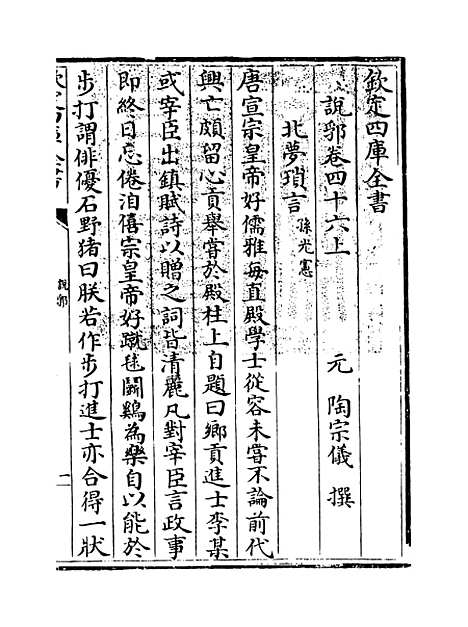 欽定四庫全書
說郛卷四十六上
元 陶宗儀 撰
北夢瑣言 孫光憲
唐宣宗皇帝好儒雅每直殿學士從容未嘗不論前代
興亡頗留心貢舉嘗於殿柱上自題曰鄉貢進士李某
或宰臣出鎮賦詩以贈之詞皆清麗凡對宰臣言政事
即終日忘倦洎僖宗皇帝好蹴毬鬬鷄為樂自以能於
步打謂俳優石野猪曰朕若作步打進士亦合得一狀
說郛